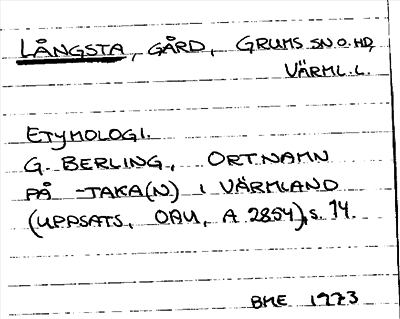 LÅNGSTA, GÅRD, GRUMS SN. O. HD,
VÄRML. L.
ETYMOLOGI.
G. BERLING, ORTNAMN
PÅ -TAKA(N) I VÄRMLAND
(UPPSATS, OAU, A 2854), s. 14.
BME 1973